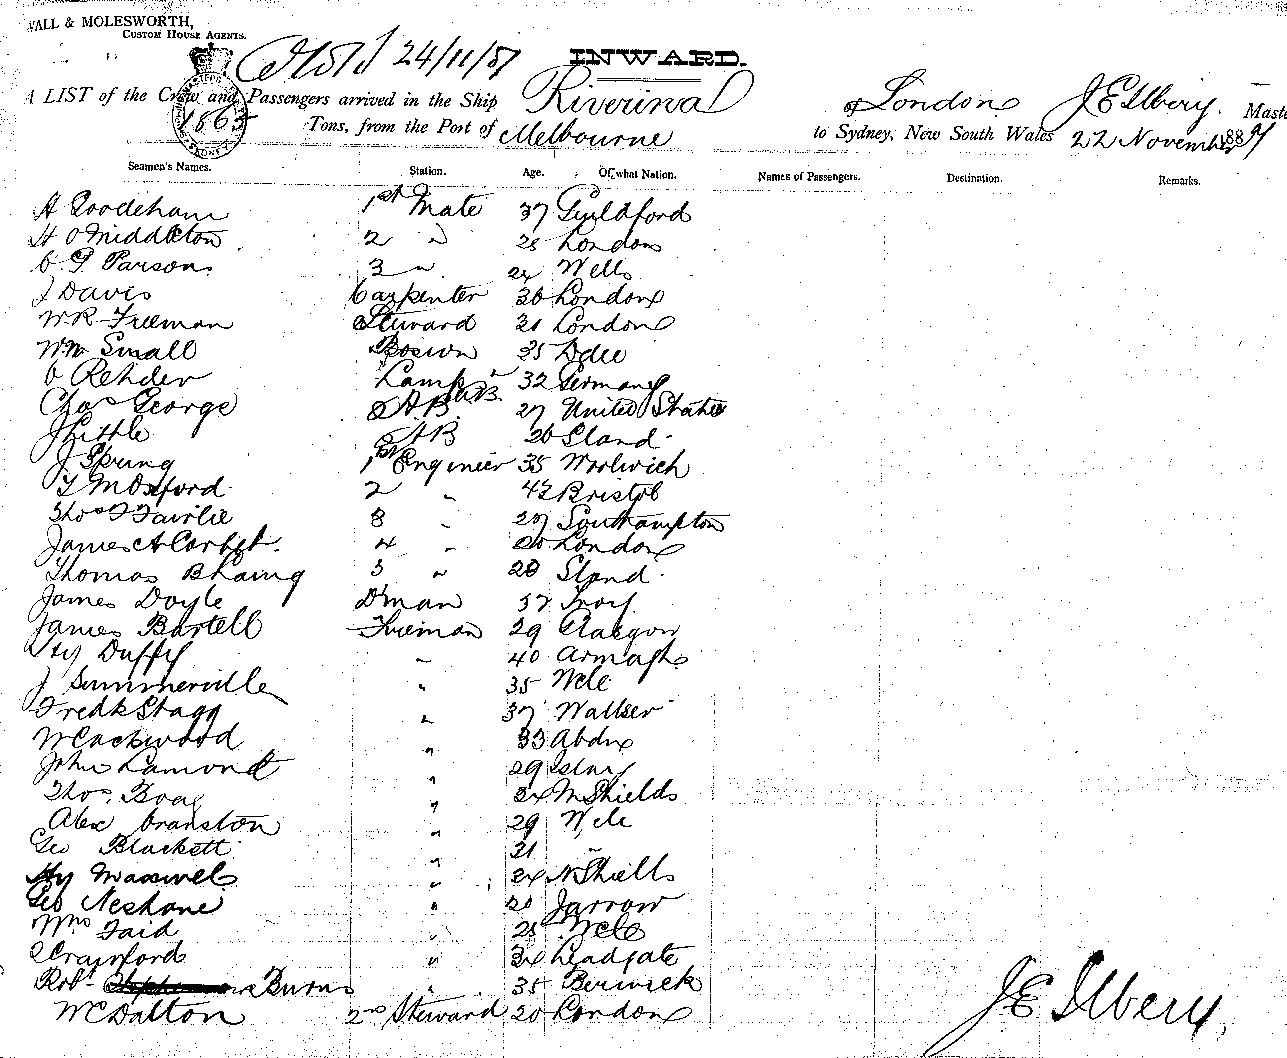 WALL & MOLESWORTH,
CUSTOM HOUSE AGENTS.
24/11/87 INWARD.
A LIST of the Crew and Passengers arrived in the Ship Riverina of London J E Ilbery Maste
1865 Tons, from the Port of Melbourne to Sydney, New South Wales 22 November 188
Seamen's Names. Station. Age. Of what Nation. Names of Passengers. Destination. Remarks.
A Goodeham 1st Mate 37 Guildford
H O Middleton 2 " 28 London
C. P. Parsons 3 " 24 Wells
J Davis Carpenter 36 London
W.R. Freeman Steward 31 London
Wm Small Bosun 35 Ddee
O Rehder Lamps A.B. 32 Germany
Chas George A.B. 27 United States
J Little AB 26 Sland
J Spring 1st Engineer 35 Woolwich
T M Oxford 2 " 42 Bristol
Thos F Fairlie 3 " 27 Southampton
James A Corbet. 4 " London
Thomas 5 " 28 Sland
James Doyle D'man 37
James Bartell Fireman 29 Glasgow
Hy Duffy " 40 Armagh
J Summerville " 35 Ncle
Fredk Stagg " 37 Walker
W Cackwood " 33 Abdn
John Lamond " 29 Islay
Thos. Boag " 34 N Shields
Alex Cranston " 29 Ncle
Geo Blackett " 31 "
Hy Maxwell " 34 N Shields
Geo Neshane " 20 Jarrow
Wm Faid " 28 Ncle
Crawford " 34 Leadgate
Robt Burns " 35 Berwick
W C Dalton 2nd Steward 20 London
J E Ilbery